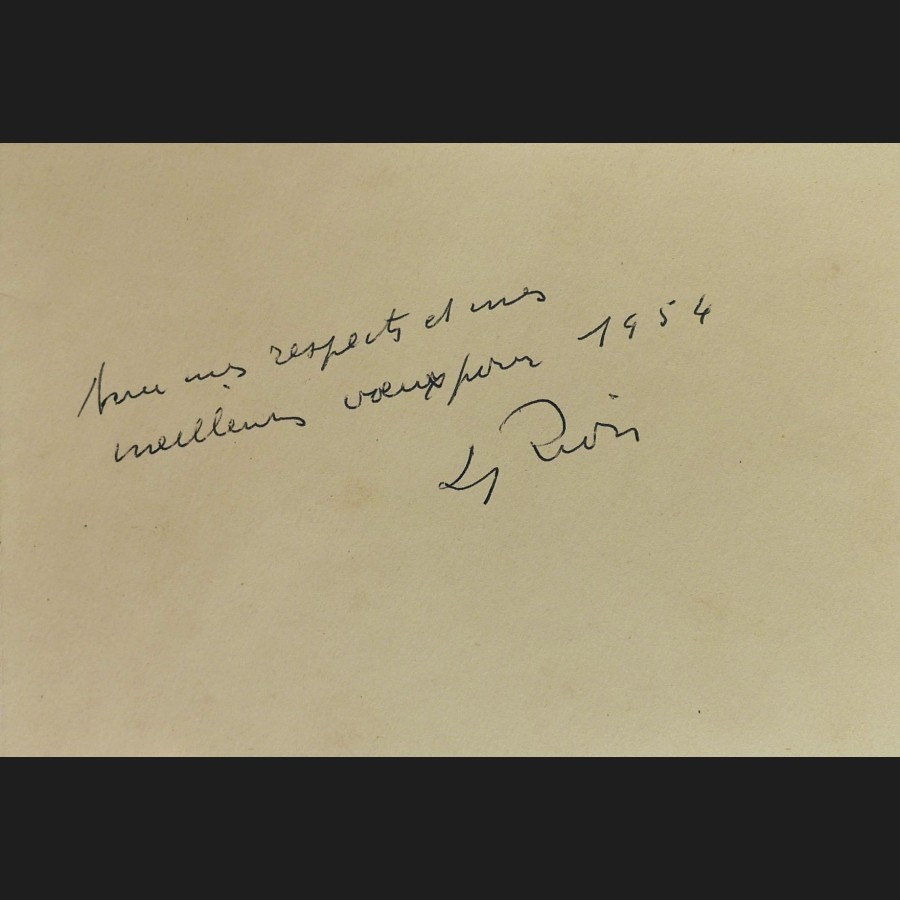 Avec mes respects et mes
meilleurs vœux pour 1954